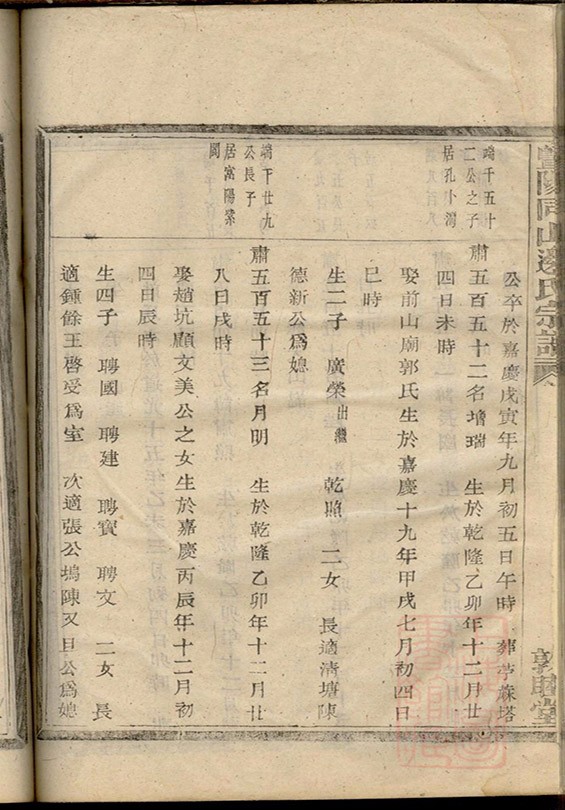 暨陽同山邊氏宗譜
敦睦堂
公卒於嘉慶戊寅年九月初五日午時 葬苧蘇塔
端千五十二公之子居孔卜灣
肅五百五十二名增瑞 生於乾隆乙卯年十二月廿
四日未時
娶前山廟郭氏生於嘉慶十九年甲戌七月初四日
巳時
生二子 廣榮出繼 乾照 二女 長適清塘陳
德新公爲媳
端千廿九公長子居富陽紫閬
肅五百五十三名月明 生於乾隆乙卯年十二月廿
八日戌時
娶趙坑顧文美公之女生於嘉慶丙辰年十二月初
四日辰時
生四子 聘國 聘建 聘寶 聘文 二女 長
適鍾餘王啓受爲室 次適張公塢陳又旦公爲媳